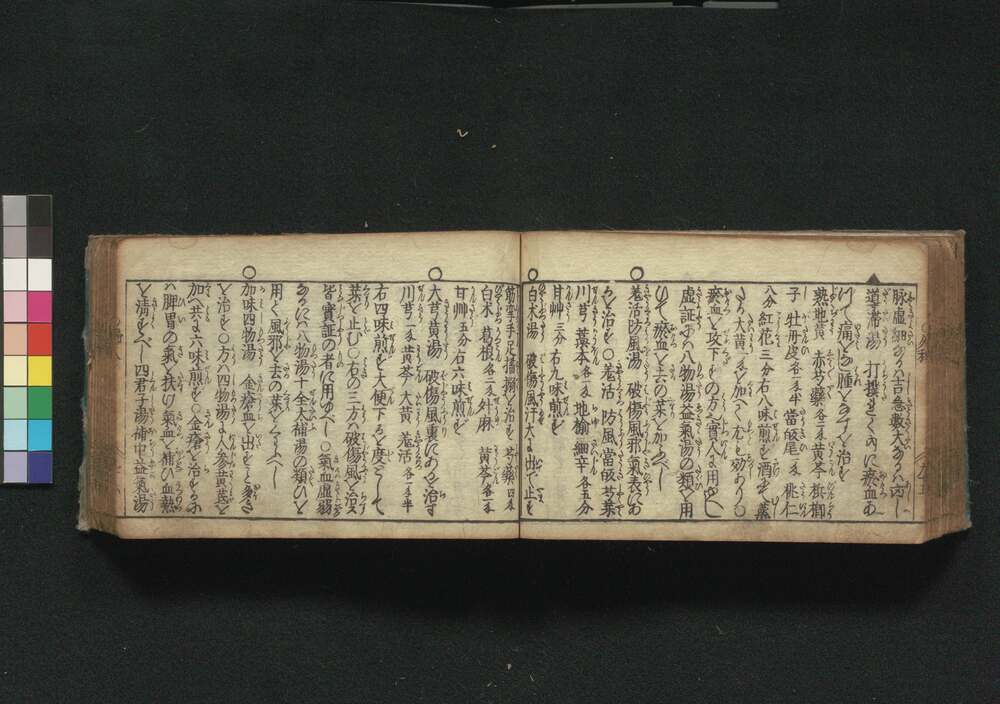 脉虚細なるハ吉急數大なるハ凶し
導滞湯 打撲をく内に瘀血あ
りて痛ミ腫るゝを治を
熟地黄 赤芍藥各二匁黄芩 梹榔
子 牡丹皮各一匁半當皈尾一匁 桃仁
八分 紅花三分右八味煎を酒を
大黄一匁を加へて尤も効あり○
瘀血を攻下もの方を實人に用ゆべし
虚証にハ八物湯益氣湯の類を用
ひて瘀血を去の薬を加ふべし
羗活防風湯 破傷風邪氣表にあ
るを治を○羗活 防風 當皈 芍薬
川芎 藁本各一匁 地榆 細辛 各五分
甘艸三分 右九味煎を
白朮湯 破傷風汗大に出て止を
筋攣手足搐搦を治を 芍藥四匁
白朮 葛根各二匁 升麻 黄芩各一匁
甘艸五分 右六味煎を
大芎黄湯 破傷風裏にあるを治す
川芎一匁 黄芩 大黄 羗活 各一匁半
右四味煎を大便下るを度として
薬を止む○右の三方ハ破傷風を治る
皆實証の者に用ゆべし○氣血虚弱
なるにハ八物湯十全大補湯の類ひを
用ひ風邪を去の薬をくハふべし
加味四物湯 金瘡血を出こと多き
を治を○方ハ四物湯に人参黄芪を
加へ共に六味煎を○金瘡を治るにハ
ハ脾胃の氣を扶け氣血を補ひ血熱
を清をべし四君子湯補中益氣湯